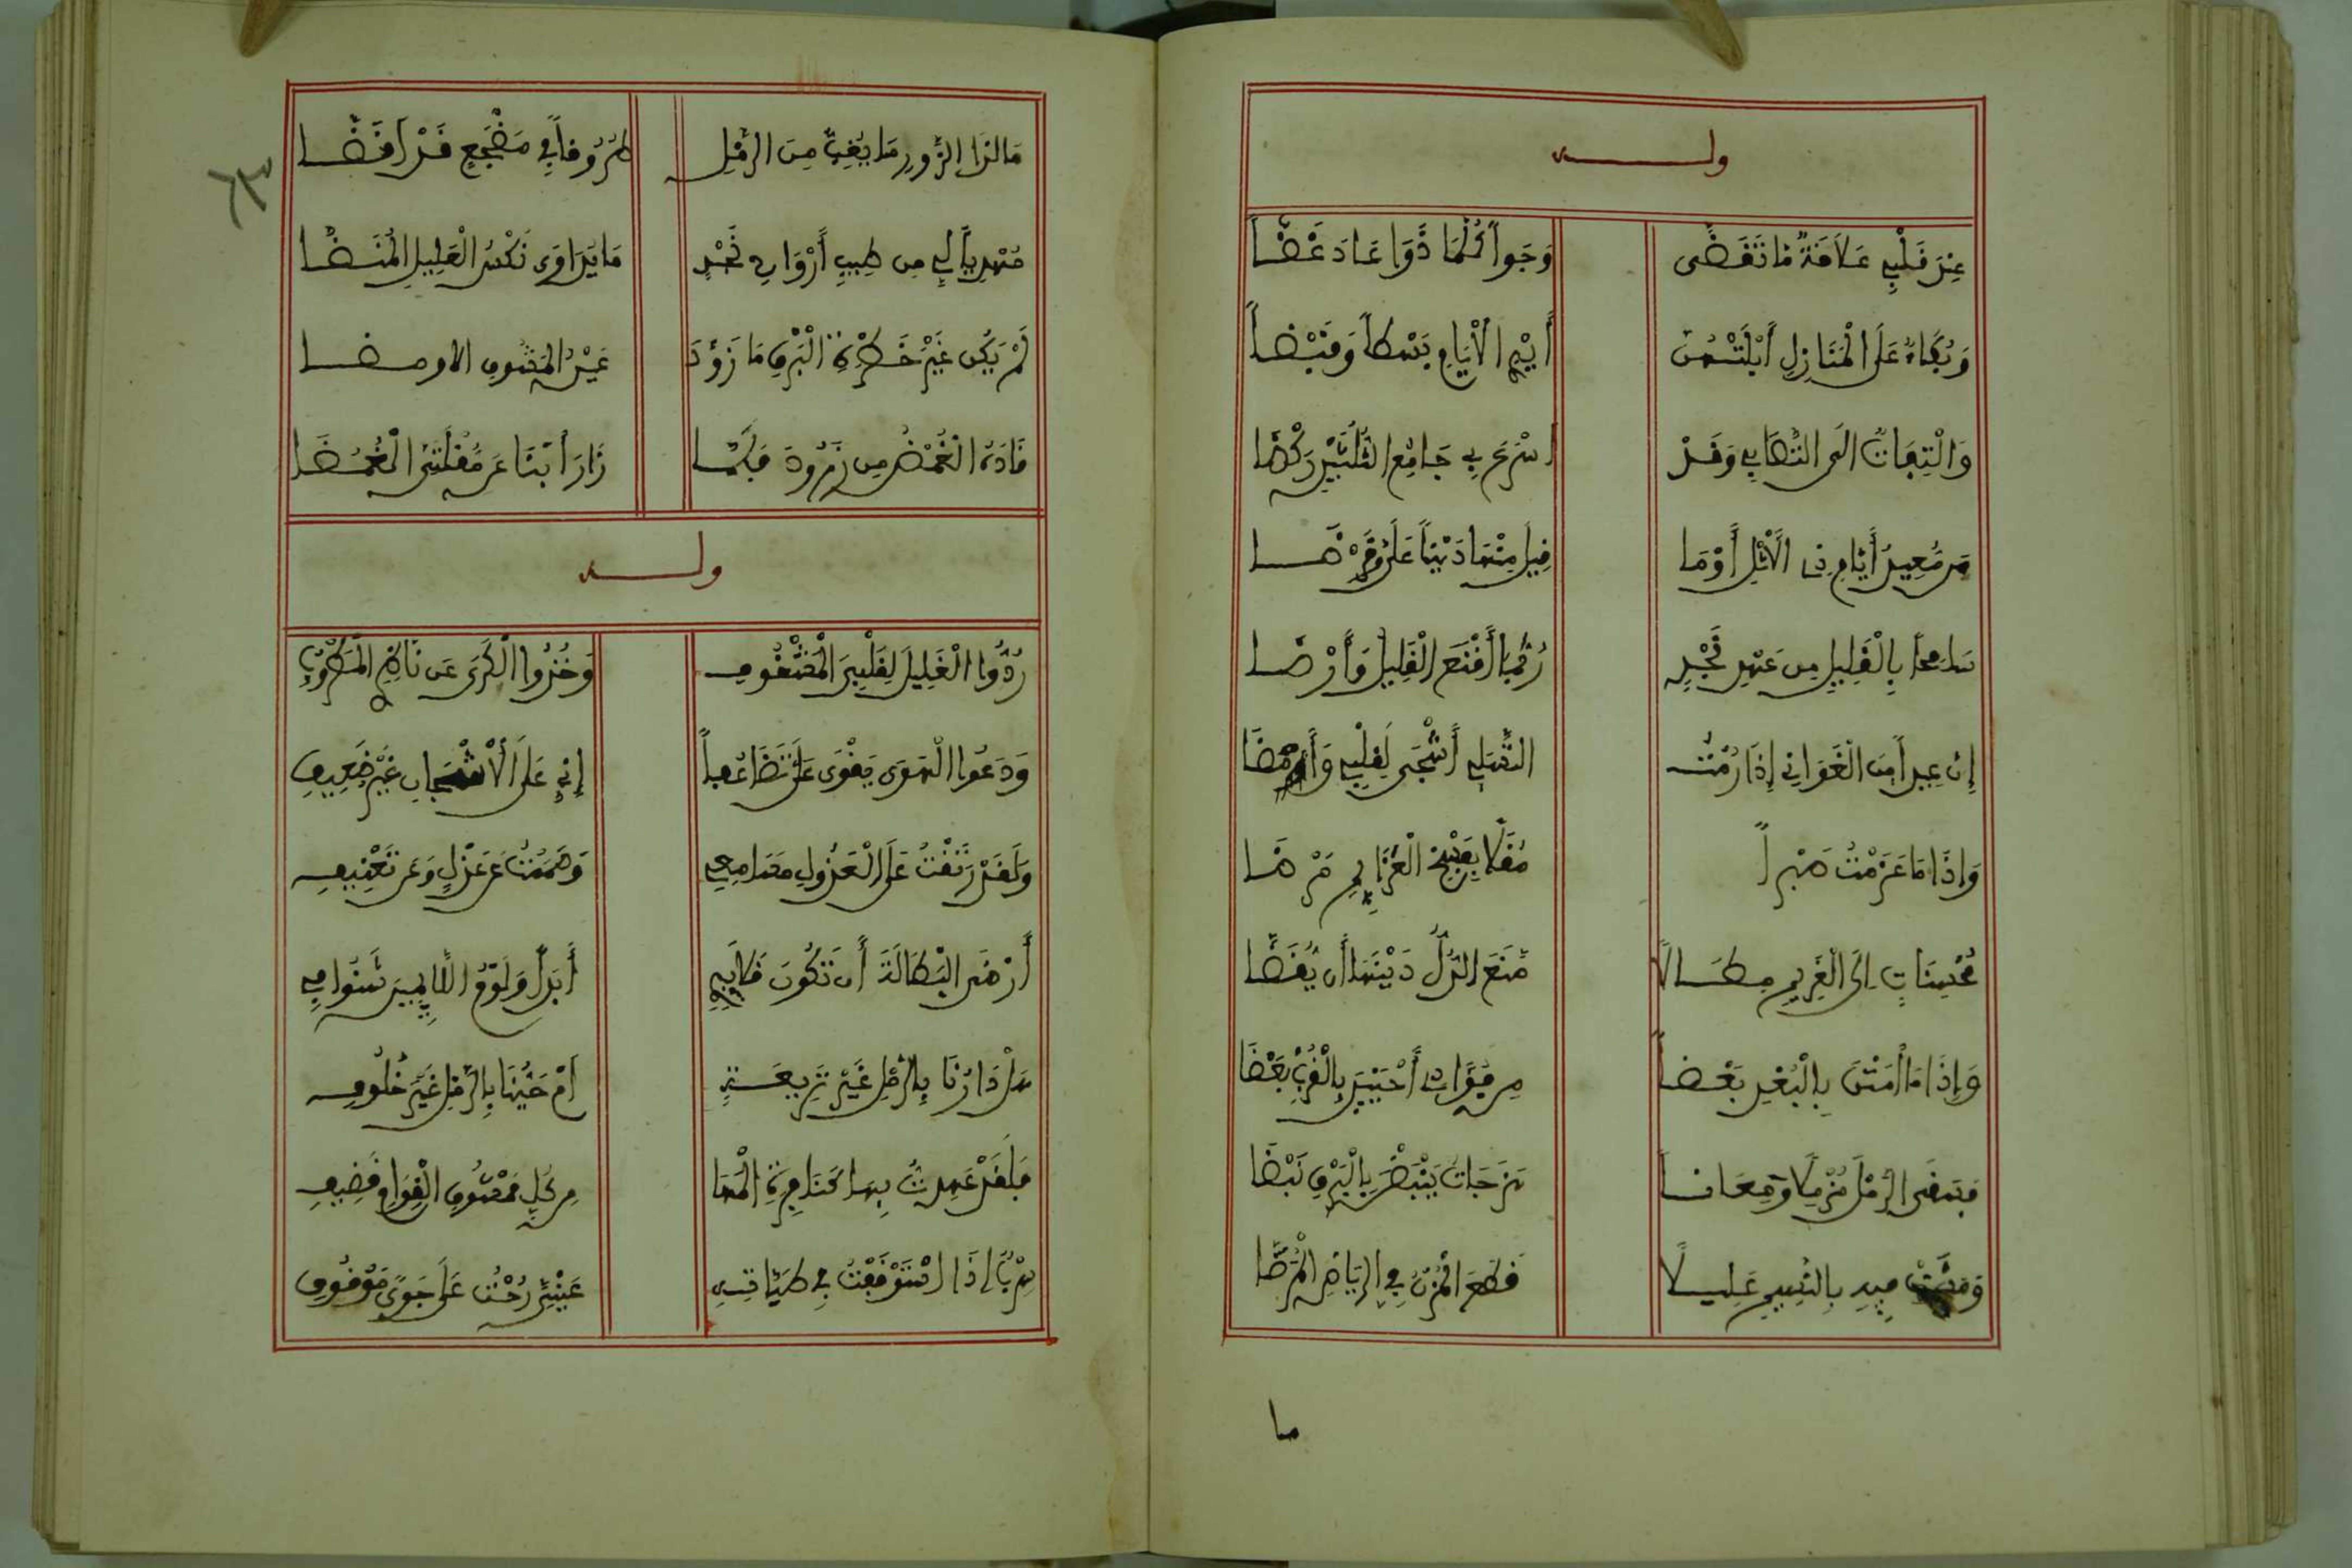 ولـــه
عِندَ قَلْبِي عَلَاقَةٌ مَا تَقَضَّى
وَجَوًى كُلَّمَا ذَوَى عَادَ غَضَّا
وَبُكَاءٌ عَلَى الْمَنَازِلِ أَبْلَتْهُنَّ
أَيْدِي الْأَيَّامِ بَسْطاً وَقَبْضاً
وَالْتِفَاتٌ الَى التَّصَابِي وَقَدْ
اسْرَعَ بِي جَامِحُ الثَّلَثَيْنِ رَكْضَا
مَن مُعِيدٌ أَيَّامَ ذِي الْأَثْلِ أَوْ مَا
قَلَّ مِنْهَا دَيْناً عَلَيَّ وَقَرْضَا
سَامِحاً بِالْقَلِيلِ مِن عَهْدِ نَجْدٍ
رُبَّمَا أَقْنَعَ الْقَلِيلُ وَأَرْضَا
إِن عِيداً مِنَ الْغَوَانِي إِذَا رُمْتُ
التَّسَلِي أَشْجَى لِقَلْبِي وَأَمْضَا
وَإِذَا مَا عَزَمْتُ صَبْراً
مُقَلًا يَفْسَخُ الْعَزَائِمَ مَرْضَا
مُحْسِنَاتٍ إِلَى الْغَرِيمِ مِطَالًا
مَنَعَ الدَّلُّ دَيْنَهَا أَن يُقَضَّا
وَإِذَا مَا أَمَتْنَ بِالْبُعْدِ بَعْضاً
مِن هَوَاتِ أَحْيَيْنَ بِالْقُرْبِ بَعْضَا
فَسَقَى الرَّمْلَ مُزْمِلًا وَمَعَانَا
نَزَحَاتٌ يَنْبِضْنَ بِالْبَرْقِ نَبْضَا
وَمَشَتْ فِيهِ بِالنَّسِيمِ عَلِيـلًا
قِطَعَ الْمُزْنِ فِي الرِّيَاضِ الْمُرَضَّا
ما
مَا لِذَا الزَّوْرِ مَا يُغِبُّ مِنَ الرَّمْلِ
طُرُوقاً فِي مَضْجَعٍ قَدْ أَقَضَّا
مُهْدِياً لِي مِن طِيبِ أَرْوَاحِ نَجْدٍ
مَا يُدَاوِي نُكْسَ الْعَلِيلِ الْمُنَضَّا
لَمْ يَكُن غَيْرَ خَطْرَةِ الْبَرْقِ مَا زَوَّدَ
عَيْنَ الْمَشُوقِ الا ومضـا
قَادَهُ الْغَمْضُ مِن زَرُودَ فَلَمَّا
زَارَ أَنْبَا عَن مُقْلَتَيَّ الْغُمْضَا
ولـــه
رُدُّوا الْغَلِيلَ لِقَلْبِيَ الْمَشْغُوفِ
وَخُذُوا الْكَرَى عَن نَاظِرِي الْمَطْرُوفِ
وَدَعُوا الْهَوَى يَقْوَى عَلَيَّ تَضَاعُفاً
إِنِّي عَلَى الْأَشْجَانِ غَيْرُ ضَعِيفِ
وَلَقَدْ رَتَقْتُ عَلَى الْعَذُولِ مَسَامِعِي
وَصَمَمْتُ عَن عَذْلٍ وَعَن تَعْنِيفِ
أَرْضَى الْبَطَالَةَ أَن تَكُونَ قَلَائِدِي
أَبَداً وَلَوْمُ اللَّائِمِينَ شُنُوفِي
هَلْ دَارُنَا بِالرَّمْلِ غَيْرُ نَزِيعَـةٍ
أَمْ حَيُّنَا بِالرَّمْلِ غَيْرُ خُلُوفِ
فَلَقَدْ عَهِدتُ بِهَا كَنَافِرَةِ الْمَهَا
مِن كُلِّ مَمْشُوقِ الْقَوَامِ قَضِيفِ
سِرْباً إِذَا اسْتَوْقَفْتُ فِي ظَبَيَاتِهِ
عَيْنَيَّ رُحْتُ عَلَى جَوًى مَوْقُوفِ
٦٣